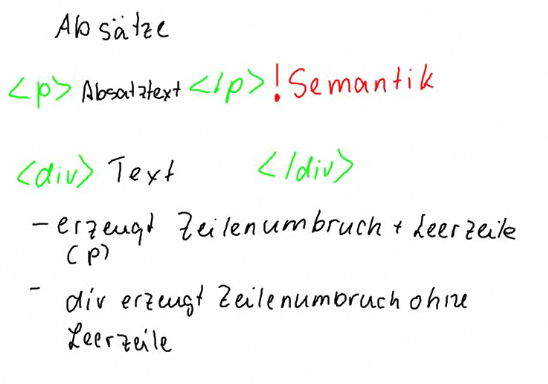 Absätze
<p> Absatztext </p> ! Semantik
<div> Text </div>
- erzeugt Zeilenumbruch + Leerzeile
(p)
- div erzeugt Zeilenumbruch ohne
Leerzeile